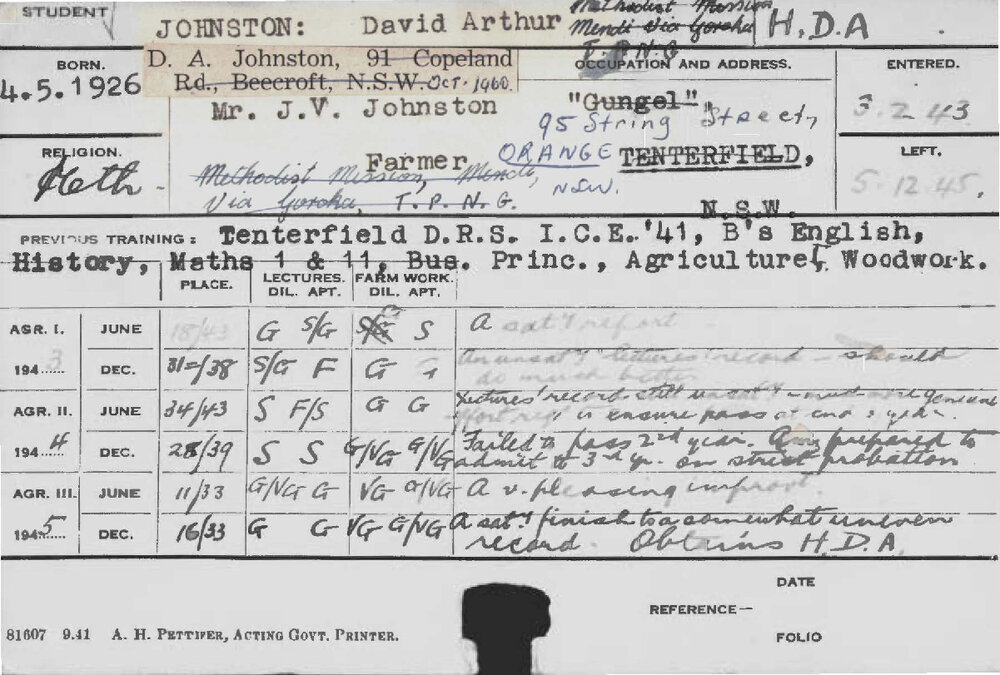 STUDENT
JOHNSTON: David Arthur
Methodist Mission
Mendi Via Goroka
T.P.N.G
H.D.A
BORN.
4.5.1926
D. A. Johnston, 91 Copeland
Rd., Beecroft, N.S.W. OCT. 1960.
OCCUPATION AND ADDRESS.
ENTERED.
3.2.43
Mr. J.V. Johnston
"Gungel",
95 String Street,
RELIGION.
Meth.
Farmer
ORANGE TENTERFIELD,
LEFT.
5.12.45.
Methodist Mission, Mendi,
N.S.W.
Via Goroka, T.P.N.G.
N.S.W.
PREVIOUS TRAINING: Tenterfield D.R.S. I.C.E. '41, B's English,
History, Maths 1 & 11, Bus. Princ., Agriculture, Woodwork.
PLACE. LECTURES. DIL. APT. FARM WORK. DIL. APT.
AGR. I. JUNE 18/43 G S/G S/G S A sat'y report.
1943 DEC. 31=/38 S/G F G G An unsat'y lectures' record – should
do much better
AGR. II. JUNE 34/43 S F/S G G Lectures' record still unsat'y – must
to ensure pass at end of year.
1944 DEC. 28/39 S S G/VG G/VG Failed to pass 2nd year. Am prepared to
admit to 3rd yr. on strict probation
AGR. III. JUNE 11/33 G/VG G VG G/VG A v. pleasing improvt.
1945 DEC. 16/33 G G VG G/VG A sat'y finish to a somewhat uneven
record. Obtains H.D.A.
DATE
REFERENCE—
FOLIO
81607 9.41 A. H. PETTIFER, ACTING GOVT. PRINTER.